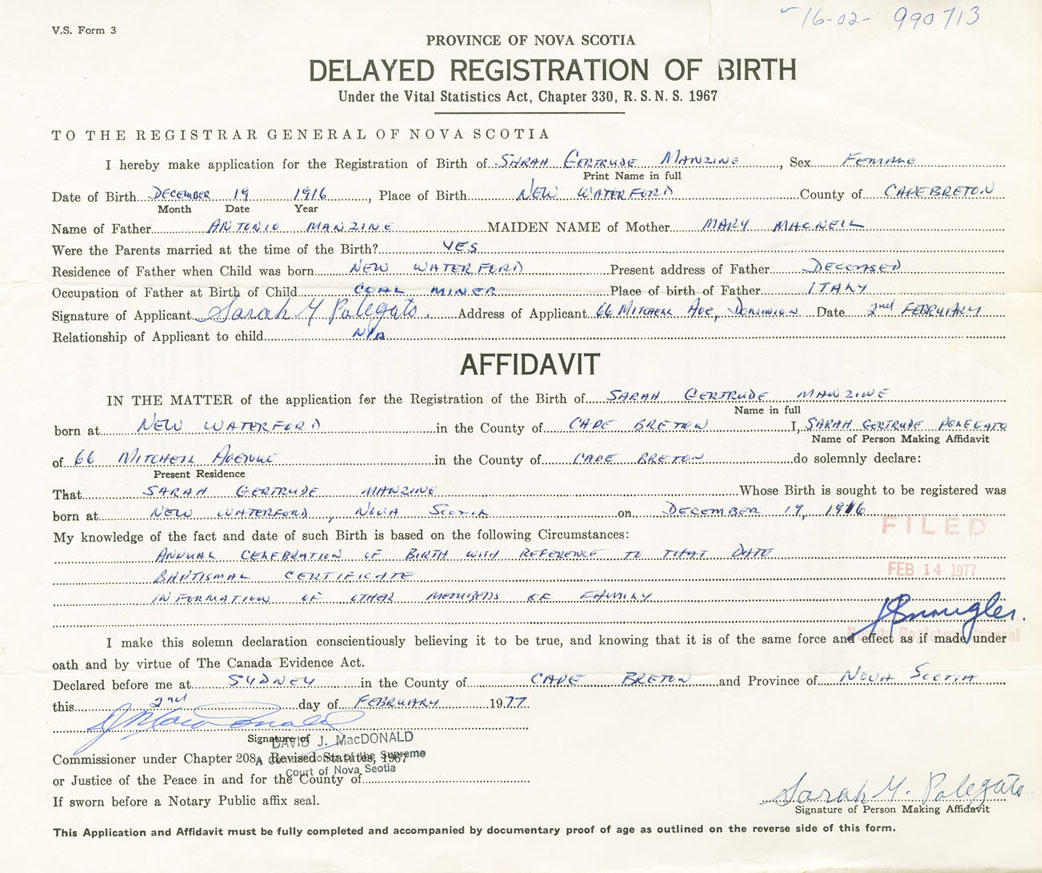 V.S. Form 3
16-02- 990713
PROVINCE OF NOVA SCOTIA
DELAYED REGISTRATION OF BIRTH
Under the Vital Statistics Act, Chapter 330, R. S. N. S. 1967
TO THE REGISTRAR GENERAL OF NOVA SCOTIA
I hereby make application for the Registration of Birth of SARAH GERTRUDE MANZINE, Sex FEMALE
Print Name in full
Date of Birth DECEMBER 19 1916, Place of Birth NEW WATERFORD County of CAPE BRETON
Month Date Year
Name of Father ANTONIO MANZINE MAIDEN NAME of Mother MARY MACNEIL
Were the Parents married at the time of the Birth? YES
Residence of Father when Child was born NEW WATERFORD Present address of Father DECEASED
Occupation of Father at Birth of Child COAL MINER Place of birth of Father ITALY
Signature of Applicant Sarah G Polegato. Address of Applicant 66 MITCHELL AVE, DOMINION Date 2nd FEBRUARY
Relationship of Applicant to child N/A
AFFIDAVIT
IN THE MATTER of the application for the Registration of the Birth of SARAH GERTRUDE MANZINE
Name in full
born at NEW WATERFORD in the County of CAPE BRETON I, SARAH GERTRUDE POLEGATO
Name of Person Making Affidavit
of 66 MITCHELL AVENUE in the County of CAPE BRETON do solemnly declare:
Present Residence
That SARAH GERTRUDE MANZINE Whose Birth is sought to be registered was
born at NEW WATERFORD, NOVA SCOTIA on DECEMBER 19, 1916
FILED
My knowledge of the fact and date of such Birth is based on the following Circumstances:
ANNUAL CELEBRATION OF BIRTH WITH REFERENCE TO THAT DATE
FEB 14 1977
BAPTISMAL CERTIFICATE
INFORMATION OF OTHER MEMBERS OF FAMILY
I make this solemn declaration conscientiously believing it to be true, and knowing that it is of the same force and effect as if made under
oath and by virtue of The Canada Evidence Act.
Declared before me at SYDNEY in the County of CAPE BRETON and Province of NOVA SCOTIA
this 2nd day of FEBRUARY 1977
Signature of
DAVID J. MacDONALD
Commissioner under Chapter 208, Revised Statutes, 1967
A Commissioner of the Supreme
Court of Nova Scotia
or Justice of the Peace in and for the County of
If sworn before a Notary Public affix seal.
Sarah G. Polegato
Signature of Person Making Affidavit
This Application and Affidavit must be fully completed and accompanied by documentary proof of age as outlined on the reverse side of this form.